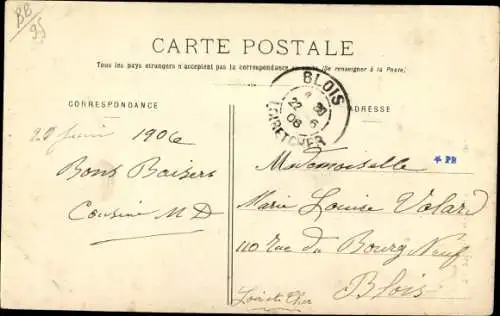 BB
95
CARTE POSTALE
Tous les pays étrangers n'acceptent pas la correspondance au recto (Se renseigner à la Poste).
CORRESPONDANCE
ADRESSE
BLOIS
22 6
06
LOIR ET CHER
22 Juin 1906
Bons Baisers
Cousine M D
Mademoiselle
* PH
Marie Louise Volard
110 Rue du Bourg Neuf
Blois
Loir et Cher